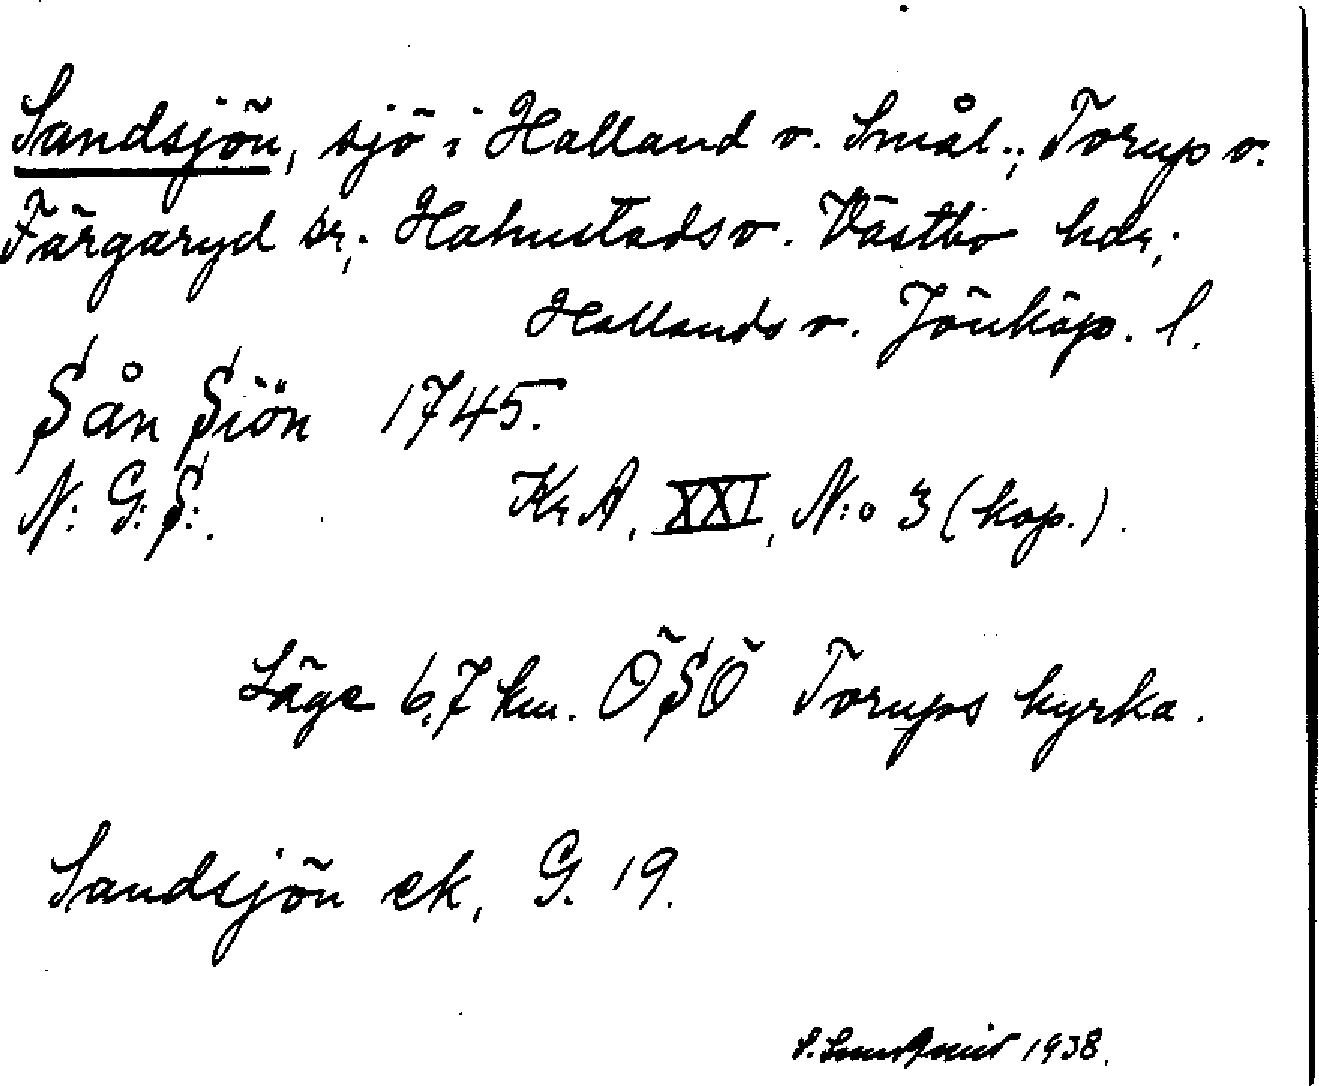 Sandsjön, sjö i Halland o. Smål.; Torup o.
Färgaryd sr; Halmstads o. Västbo hdr;
Hallands o. Jönköp. l.
Sån Siön 1745.
N: G: S:. KrA, XXI, N:o 3 (kop.).
Läge 6,7 km. ÖSÖ Torups kyrka.
Sandsjön ek, G. 19.
1938.